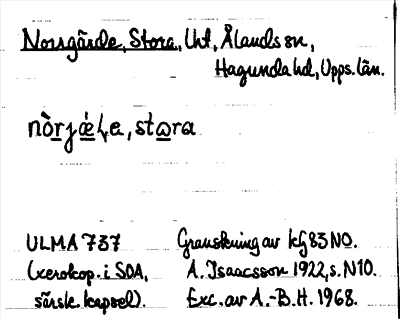 Norrgärde, Stora, Uht, Ålands sn,
Hagunda hd, Upps. län.
nòrjǽḷe, stɷra
ULMA 737 Granskning av kfg 83 NO.
(xerokop. i SOA, A. Isaacsson 1922, s. N10.
särsk. kapsel). Exc. av A.-B.H. 1968.